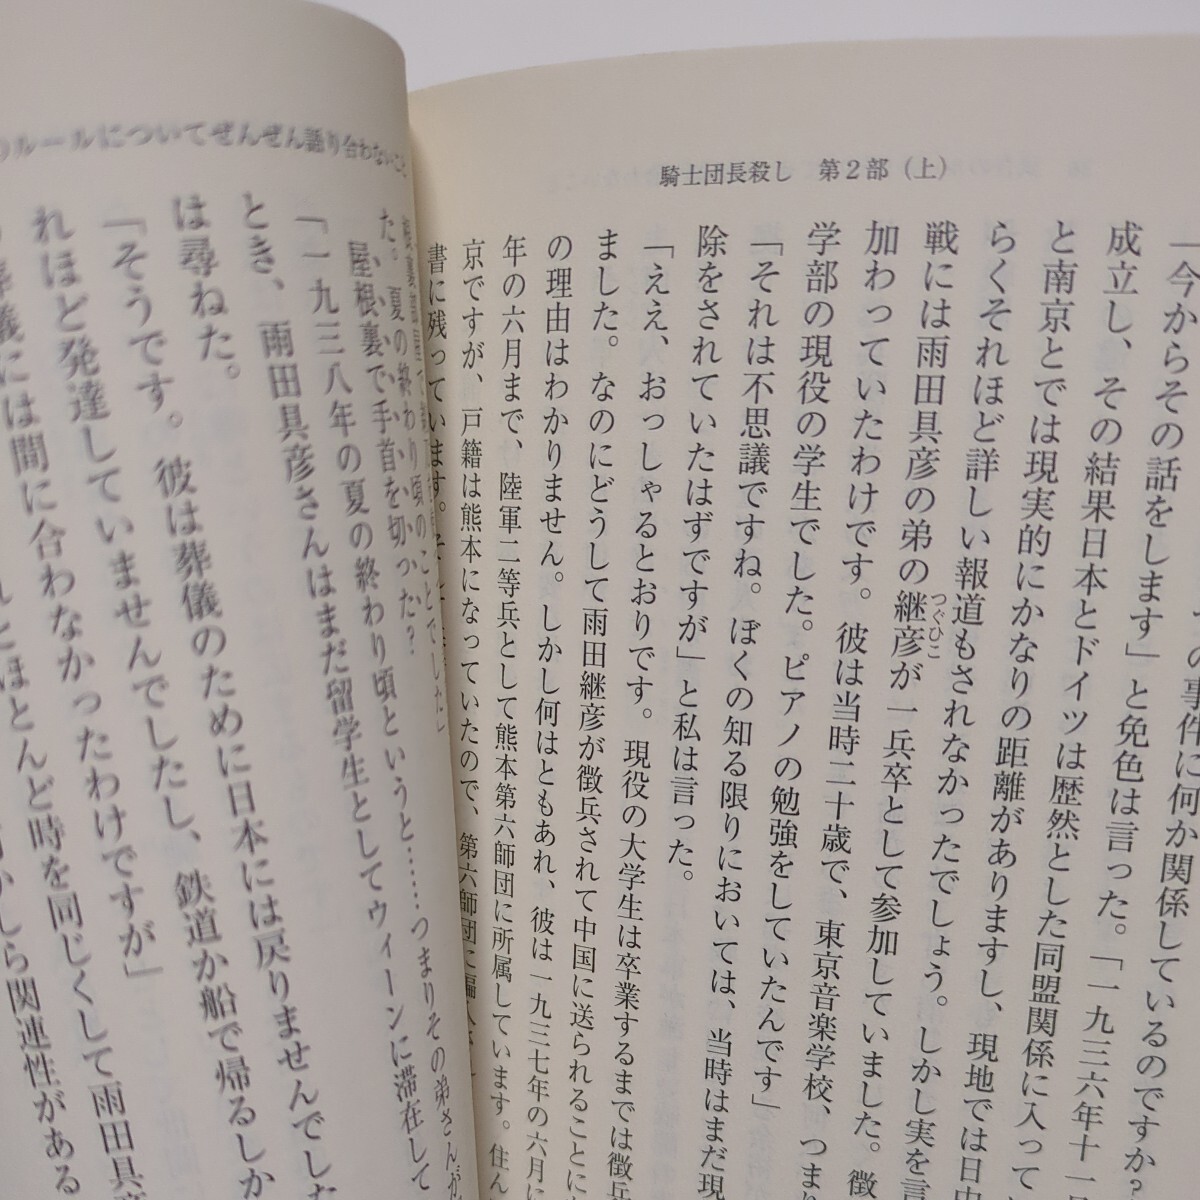 騎士団長殺し　第２部（上）
の事件に何か関係しているのですか？
「今からその話をします」と免色は言った。「一九三六年十一月
成立し、その結果日本とドイツは歴然とした同盟関係に入って
と南京とでは現実的にかなりの距離がありますし、現地では日中
らくそれほど詳しい報道もされなかったでしょう。しかし実を言
戦には雨田具彦の弟の継彦が一兵卒として参加していました。徴
つぐひこ
加わっていたわけです。彼は当時二十歳で、東京音楽学校、つまり
学部の現役の学生でした。ピアノの勉強をしていたんです」
「それは不思議ですね。ぼくの知る限りにおいては、当時はまだ現
除をされていたはずですが」と私は言った。
「ええ、おっしゃるとおりです。現役の大学生は卒業するまでは徴兵
ました。なのにどうして雨田継彦が徴兵されて中国に送られることに
の理由はわかりません。しかし何はともあれ、彼は一九三七年の六月に
年の六月まで、陸軍二等兵として熊本第六師団に所属しています。住ん
京ですが、戸籍は熊本になっていたので、第六師団に編入
書に残っています。そ
のルールについてぜんぜん語り合わないこと
た。夏の終わり頃のことでした」
屋根裏で手首を切った？
「一九三八年の夏の終わり頃というと……つまりその弟さんが
とき、雨田具彦さんはまだ留学生としてウィーンに滞在して
は尋ねた。
「そうです。彼は葬儀のために日本には戻りませんでした
れほど発達していませんでしたし、鉄道か船で帰るしか
葬儀には間に合わなかったわけですが」
ほとんど時を同じくして雨田具彦
かしら関連性がある